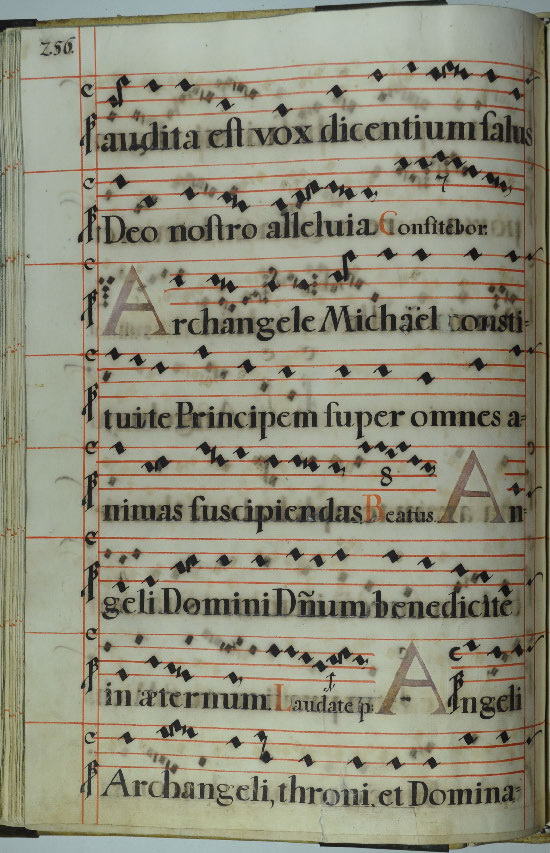 256.
audita est vox dicentium salus
Deo nostro alleluia. Confitebor.
7
Archangele Michäel consti-
tuite Principem super omnes a-
nimas suscipiendas. Beatus. An-
8
geli Domini Dñum benedicite
in æternum. Laudate p: Angeli
1
Archangeli, throni, et Domina-